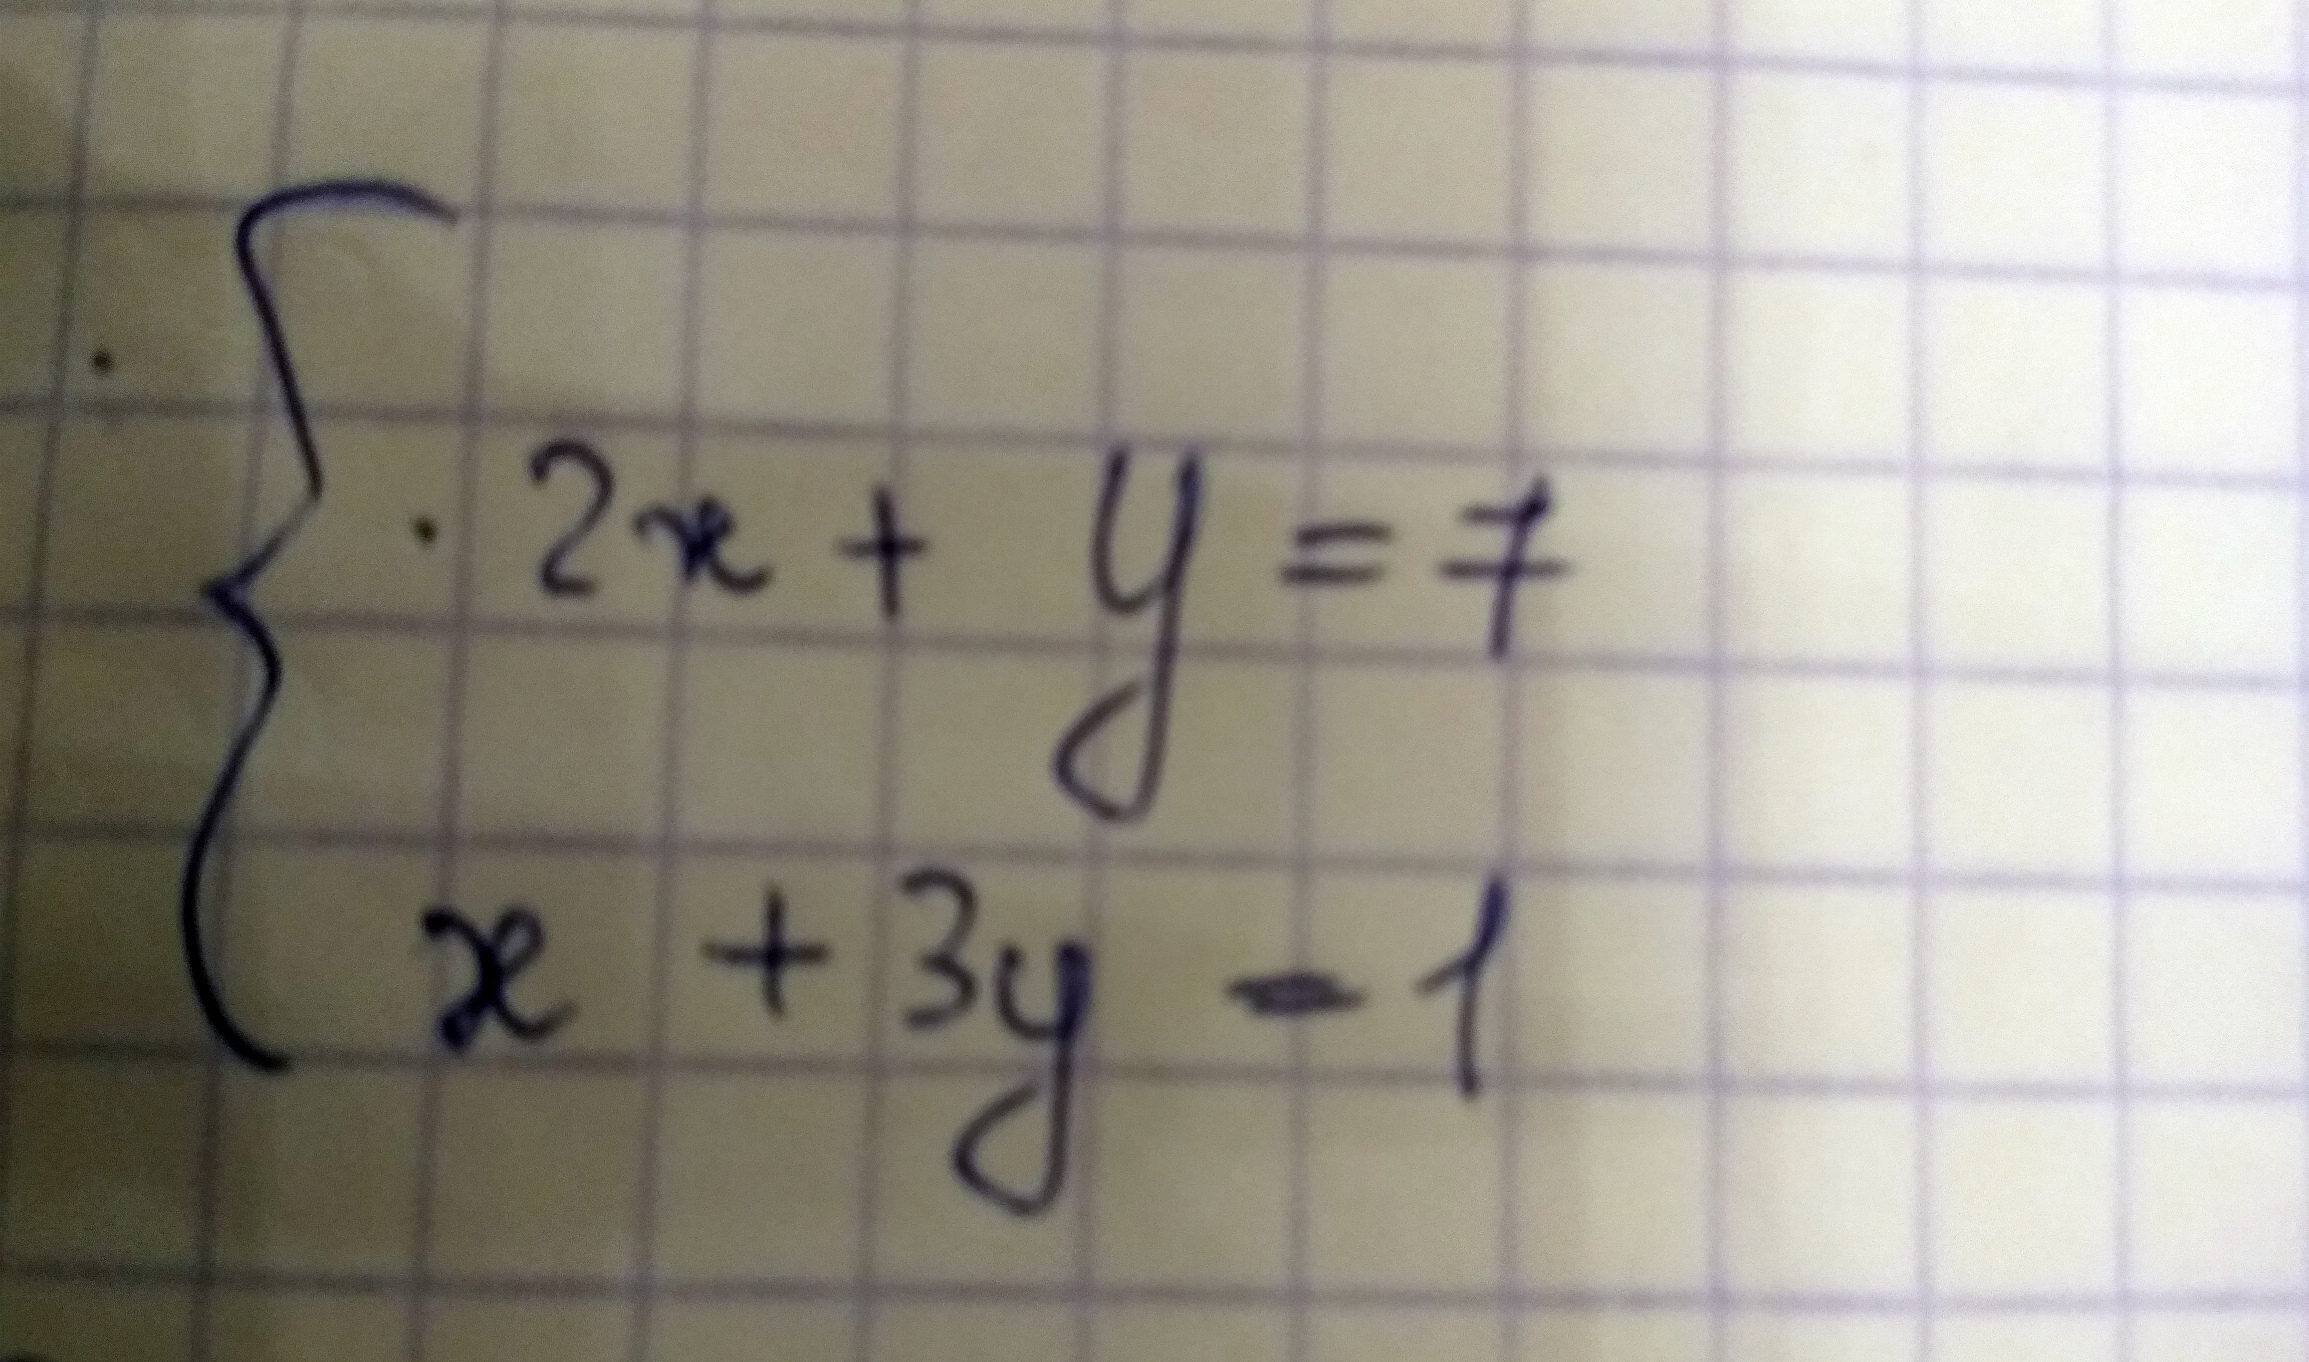 2x + y = 7
x + 3y - 1